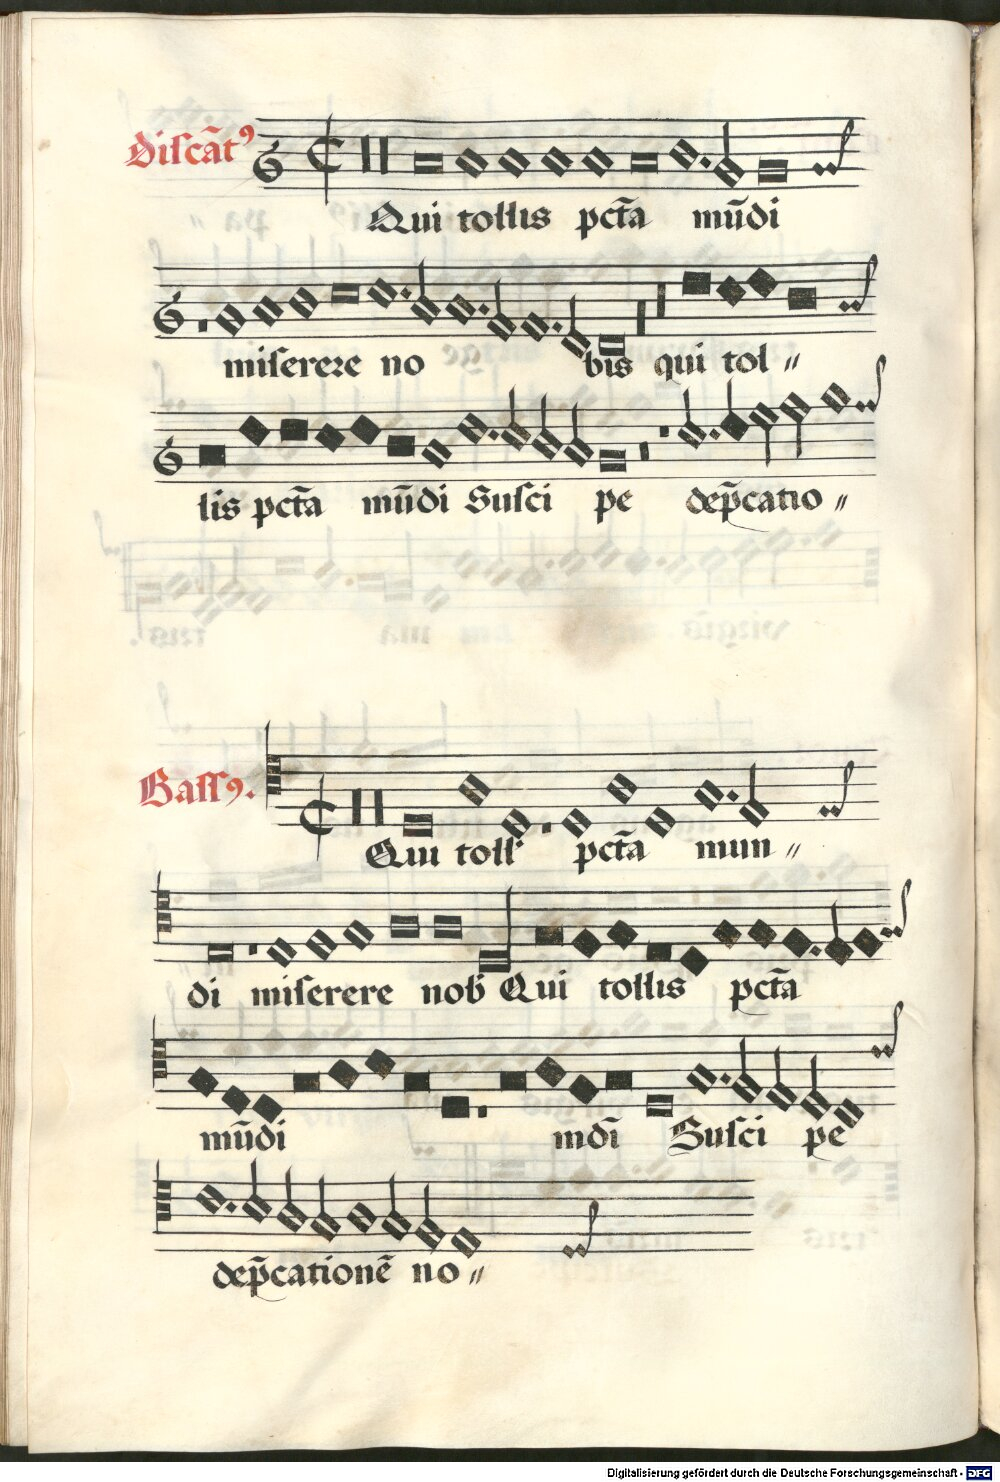 Discãt⁹
Qui tollis pct̃a mũdi
miserere no bis qui tol〃
lis pct̃a mũdi Susci pe dep̃catio〃
Bass⁹.
Qui toll' pct̃a mun〃
di miserere nob Qui tollis pct̃a
mũdi mdĩ Susci pe
dep̃cationẽ no〃
Digitalisierung gefördert durch die Deutsche Forschungsgemeinschaft - DFG